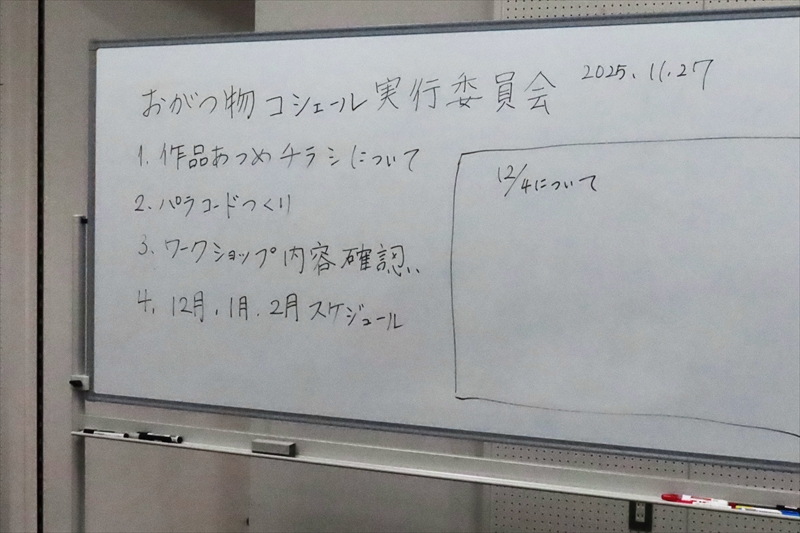 おがつ物コシェール実行委員会 2025.11.27
1. 作品あつめチラシについて
2. パラコードつくり
3. ワークショップ内容確認、
4. 12月、1月.2月スケジュール
12/4について